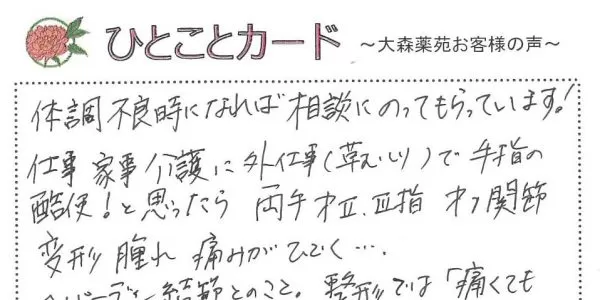 ひとことカード ～大森薬苑お客様の声～
体調不良時になれば相談にのってもらっています!
仕事 家事 介護に外仕事(草むしり)で手指の
酷使!と思ったら 両手 オⅡ.Ⅲ指 オ1関節
変形 腫れ 痛みがひどく….
ヘバーデン結節とのこと。整形では「痛くても